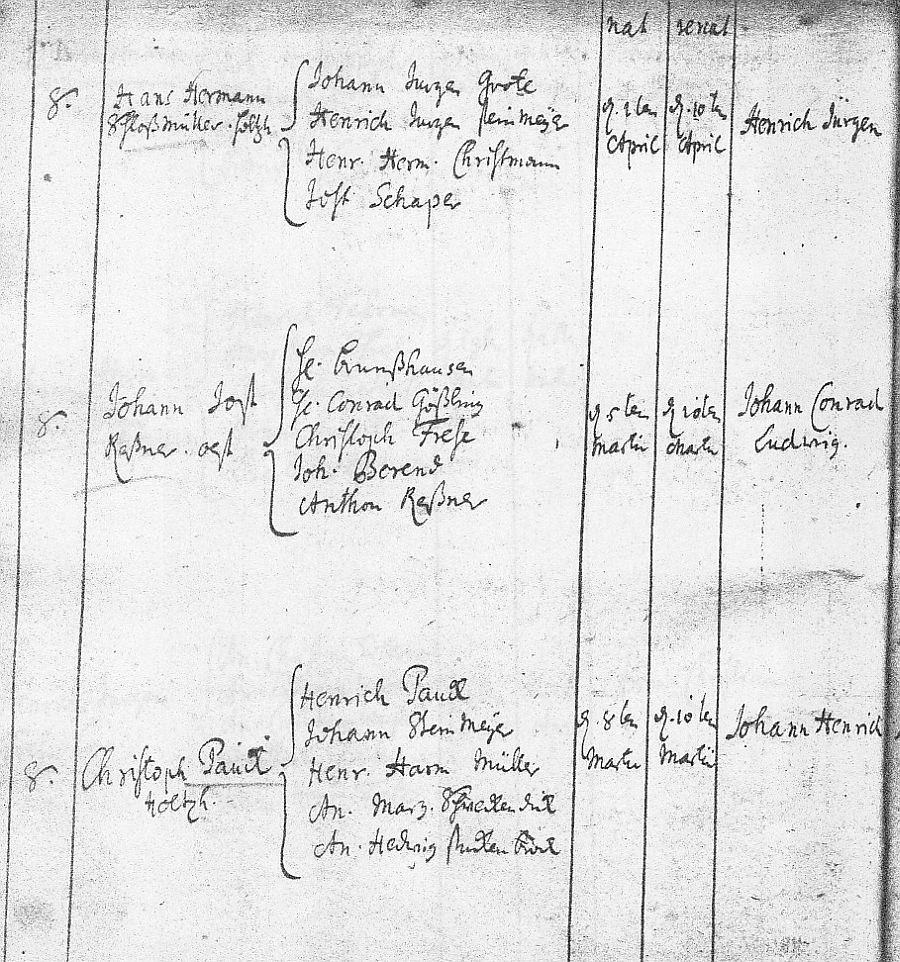 nat renat
8. Hans Hermann
Schloßmüller. Holtzh.
Johann Jurgen Grote
Henrich Jurgen Steinmeÿer
Henr. Herm. Christmann
Jost Schaper
d. ten April
d. 10 ten April
Henrich Jürgen
8. Johann Jost
Reßner. oest
H. Brunßhausen
H. Conrad Gößling
Christoph Frese
Joh. Berend
Anthon Reßner
d. 5 ten Martii
d. 10 ten Martii
Johann Conrad
Ludwig.
8. Christoph Pauck
Holtzh.
Henrich Pauck
Johann Steinmeÿer
Henr. Harm Müller
An. Marg.
An. Hedwig
d. 8 ten Martii
d. 10 ten Martii
Johann Henrich